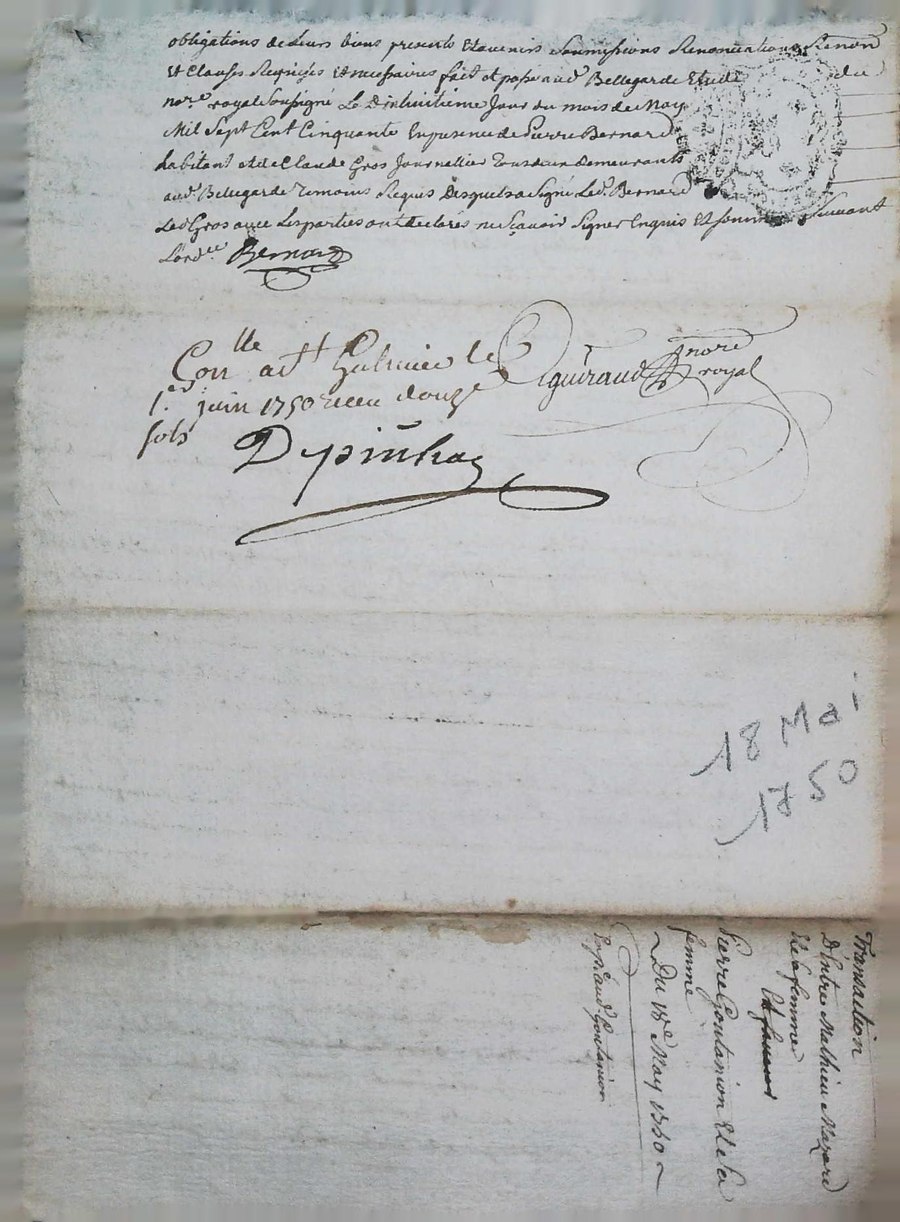 obligations de Leurs biens presents Et avenirs Soumissions Renonciations Renon
Et Clauses Requises Et necessaires fait et passé aud. Bellegarde Etude du
nore. royal Soussigné Le Dixhuitieme Jour du mois de May
Mil Sept Cent Cinquante En presence de Pierre Bernard
habitant et de Claude Gros Journallier Tous deux Demeurants
aud. Bellegarde Temoins Requis Desquels a Signé Led. Bernard
Led Gros avec Les parties ont declarés ne Sçavoir Signer Enquis Et sommés Suivant
L'ordce. Bernard
Conlle. act. Galmier le
Eguiraud nore royal
1er juin 1750 receu douze
sols
Depinhac
18 Mai
1750
Transaction
D'Entre Mathieu Mazard
Et Sa femme
Et
Pierre Goutanion Et Sa
femme
Du 18e May 1750
Expe. aud. Goutanion